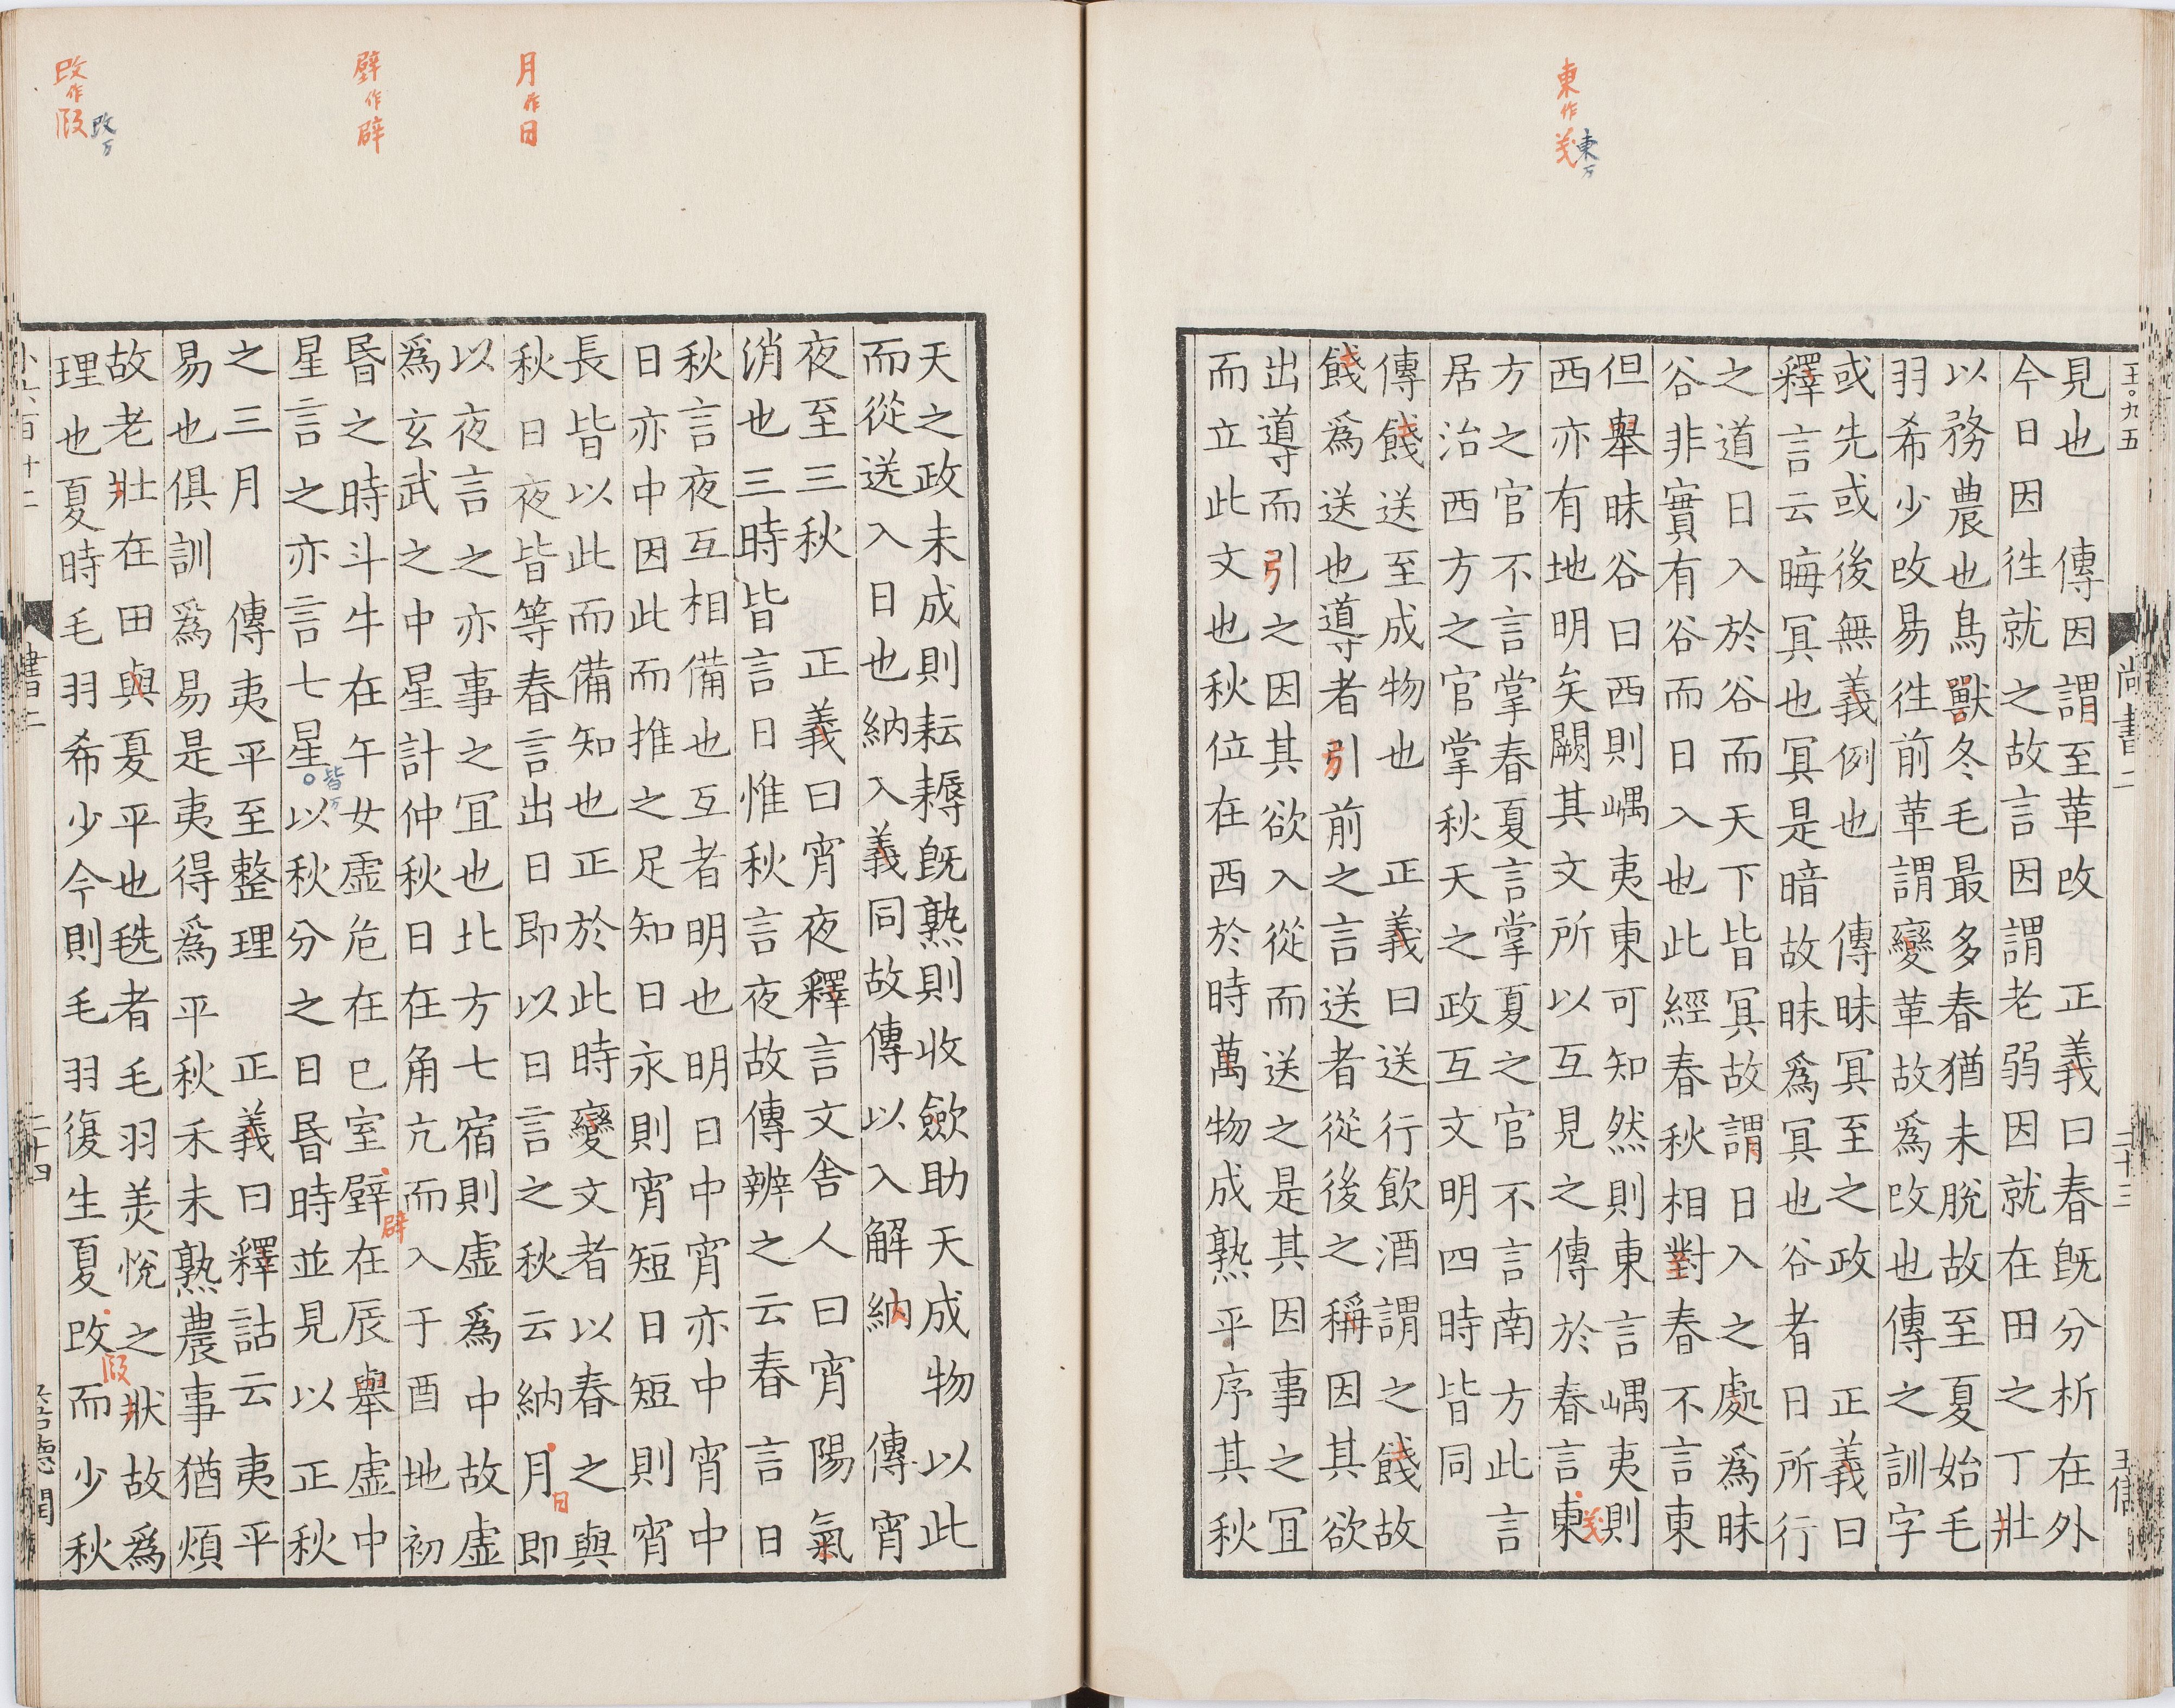 東作羲
東万
王。九五
尚書二
二十三
見也　傳因謂至革改　正義曰春旣分析在外
今日因往就之故言因謂老弱因就在田之丁壯
以務農也鳥獸冬毛最多春猶未脫故至夏始毛
羽希少改易往前革謂變革故爲改也傳之訓字
或先或後無義例也　傳昧冥至之政　正義曰
釋言云晦冥也冥是暗故昧爲冥也谷者日所行
之道日入於谷而天下皆冥故謂日入之處爲昧
谷非實有谷而日入也此經春秋相對春不言東
但舉昧谷曰西則嵎夷東可知然則東言嵎夷則
西亦有地明矣闕其文所以互見之傳於春言東
羲
方之官不言掌春夏言掌夏之官不言南方此言
居治西方之官掌秋天之政互文明四時皆同
傳餞送至成物也　正義曰送行飲酒謂之餞故
餞爲送也導者引前之言送者從後之稱因其欲
出導而引之因其欲入從而送之是其因事之宜
而立此文也秋位在西於時萬物成熟平序其秋
月作日
壁作辟
改作叚
改万
天之政未成則耘耨旣熟則收斂助天成物以此
而從送入日也納入義同故傳以入解納　傳宵
夜至三秋　正義曰宵夜釋言文舍人曰宵陽氣
消也三時皆言日惟秋言夜故傳辨之云春言日
秋言夜互相備也互者明也明日中宵亦中宵中
日亦中因此而推之足知日永則宵短日短則宵
長皆以此而備知也正於此時變文者以春之與
秋日夜皆等春言出日即以日言之秋云納月即
日
以夜言之亦事之宜也北方七宿則虛爲中故虛
爲玄武之中星計仲秋日在角亢而入于酉地初
昬之時斗牛在午女虛危在巳室壁在辰舉虛中
辟
星言之亦言七星以秋分之日昬時並見以正秋
皆万
之三月　傳夷平至整理　正義曰釋詁云夷平
易也俱訓爲易是夷得爲平秋禾未熟農事猶煩
故老壯在田與夏平也毨者毛羽美悅之狀故爲
理也夏時毛羽希少今則毛羽復生夏改而少秋
叚
書二
二十四